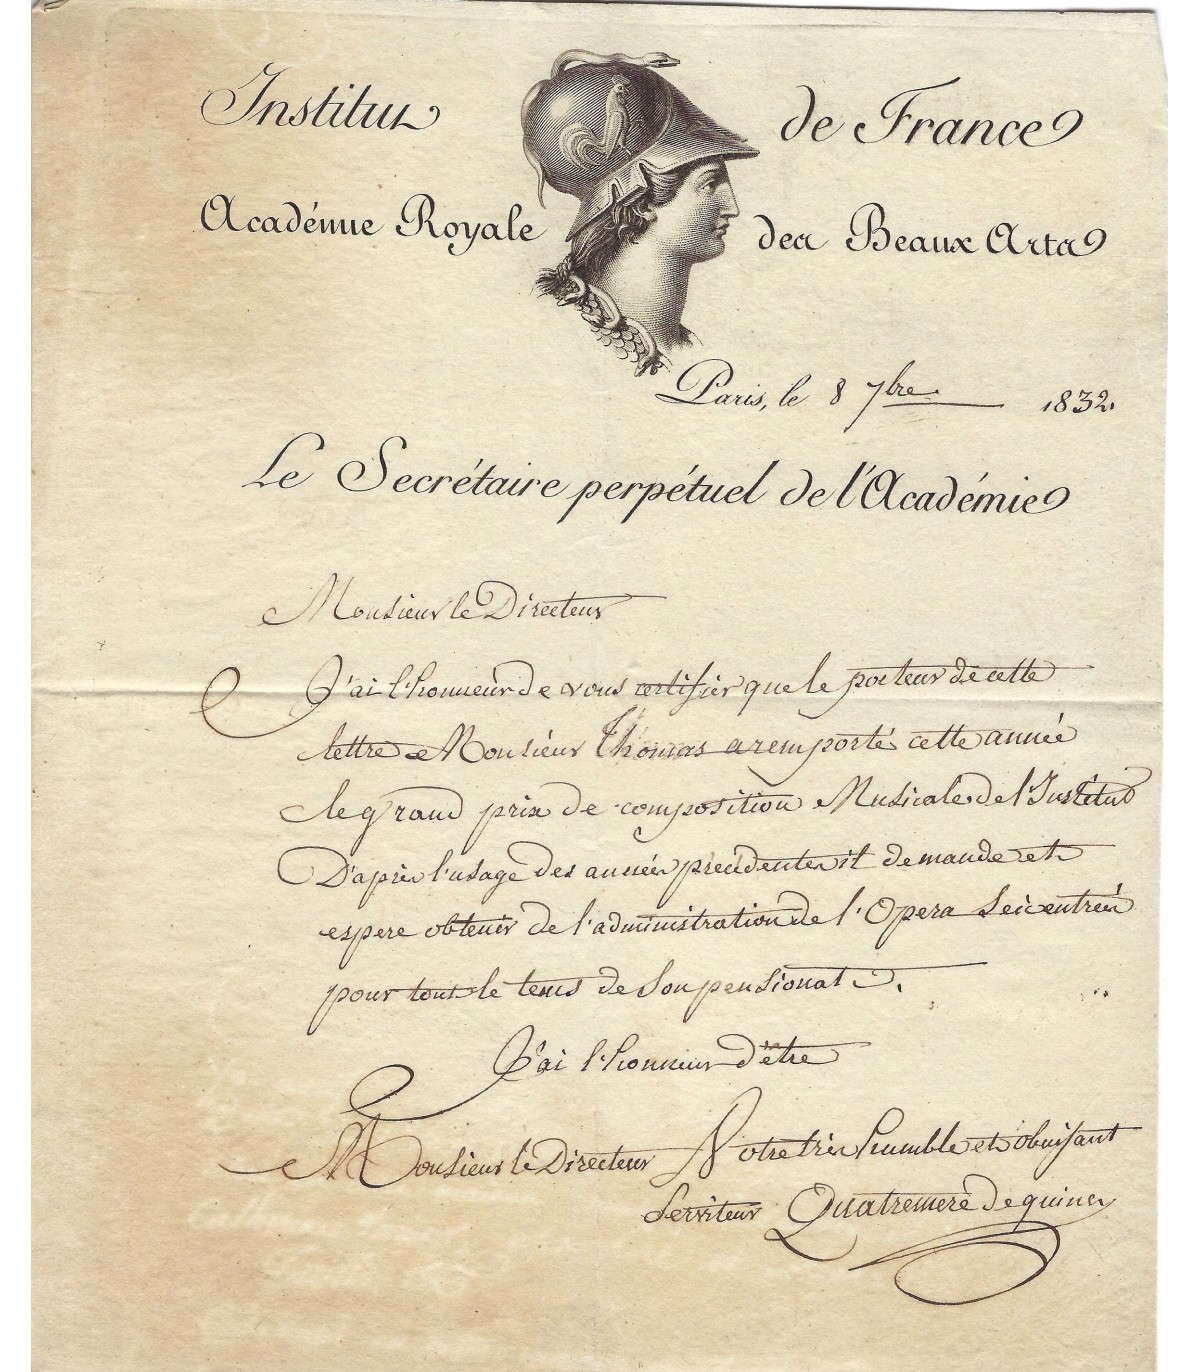 Institut de France
Académie Royale des Beaux Arts
Paris, le 8 7bre 1832.
Le Secrétaire perpétuel de l'Académie
Monsieur le Directeur
J'ai l'honneur de vous certifier que le porteur de cette
lettre Monsieur Thomas a remporté cette année
le grand prix de composition Musicale de l'Institut
D'après l'usage des années précédentes il demande et
espere obtenir de l'administration de l'Opera ses entrées
pour tout le tems de son pensionat.
J'ai l'honneur d'être
Monsieur le Directeur Votre très humble et obeissant
Serviteur Quatremere de Quincy